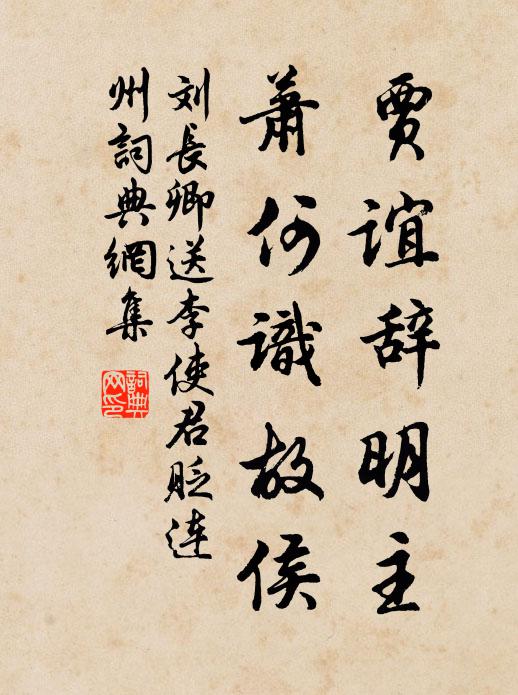 贾谊辞明主
萧何識故侯
刘長卿送李使君贬连
州詞典網集
詞典网印